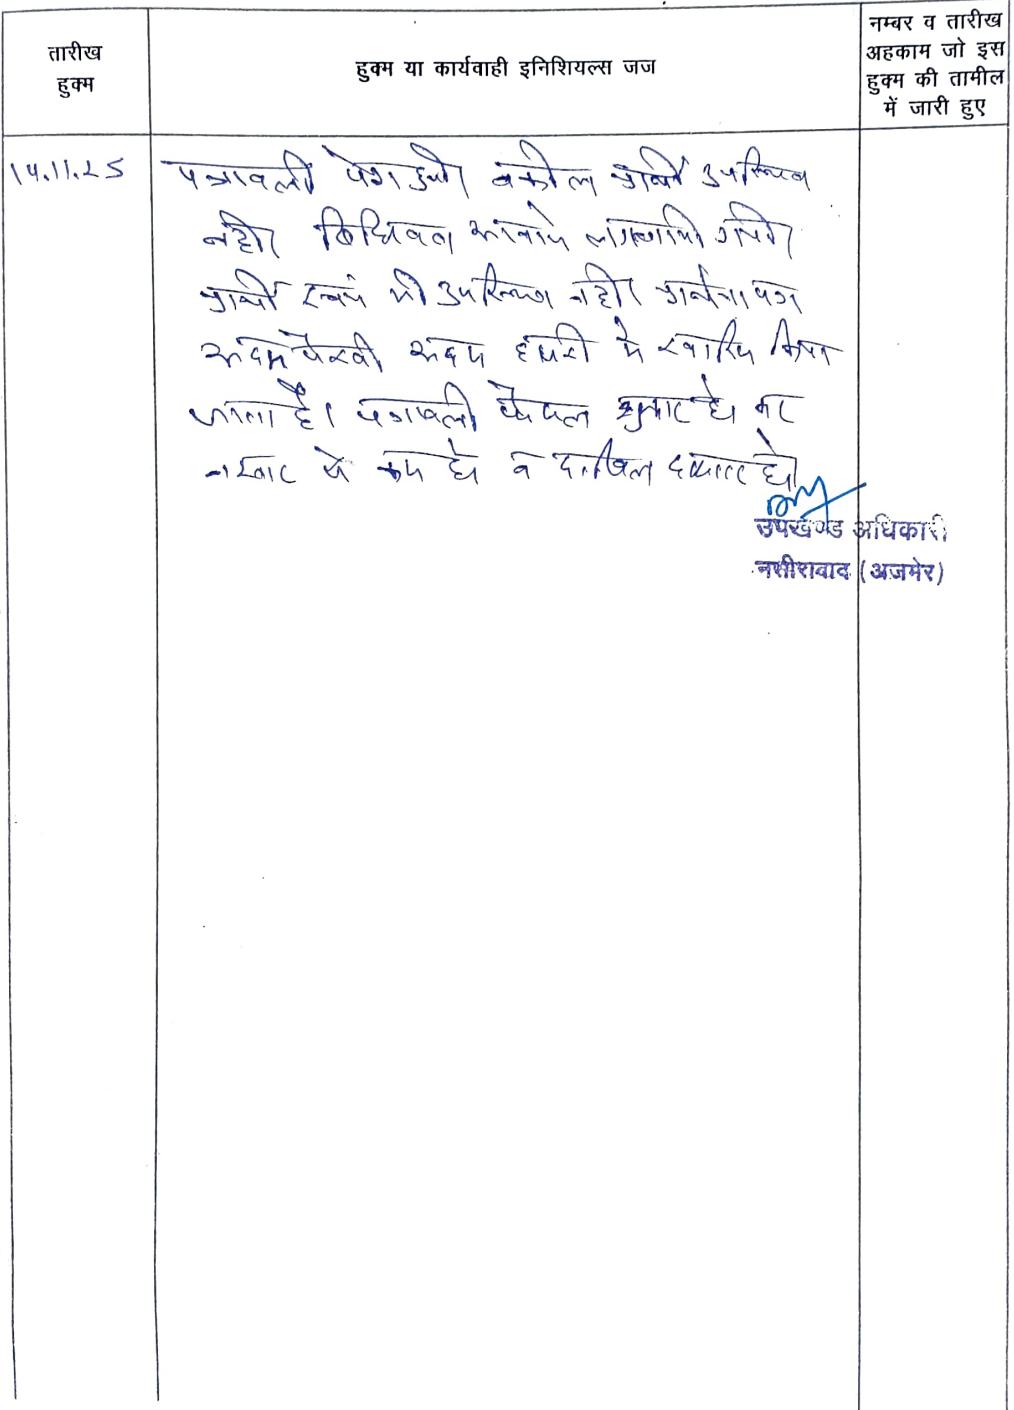 तारीख
हुक्म
हुक्म या कार्यवाही इनिशियल्स जज
नम्बर व तारीख
अहकाम जो इस
हुक्म की तामील
में जारी हुए
14.11.25
पत्रावली पेश हुयी। वकील प्रार्थी उपस्थित
नहीं। विधिवत आवाजे लगवायी गयी।
प्रार्थी स्वयं भी उपस्थित नहीं। प्रार्थना पत्र
अदम पैरवी अदम हाजरी मे खारिज किया
जाता है। पत्रावली फैसल शुमार हो कर
नम्बर से कम हो व दाखिल दफ्तर हो।
उपखण्ड अधिकारी
नसीराबाद (अजमेर)